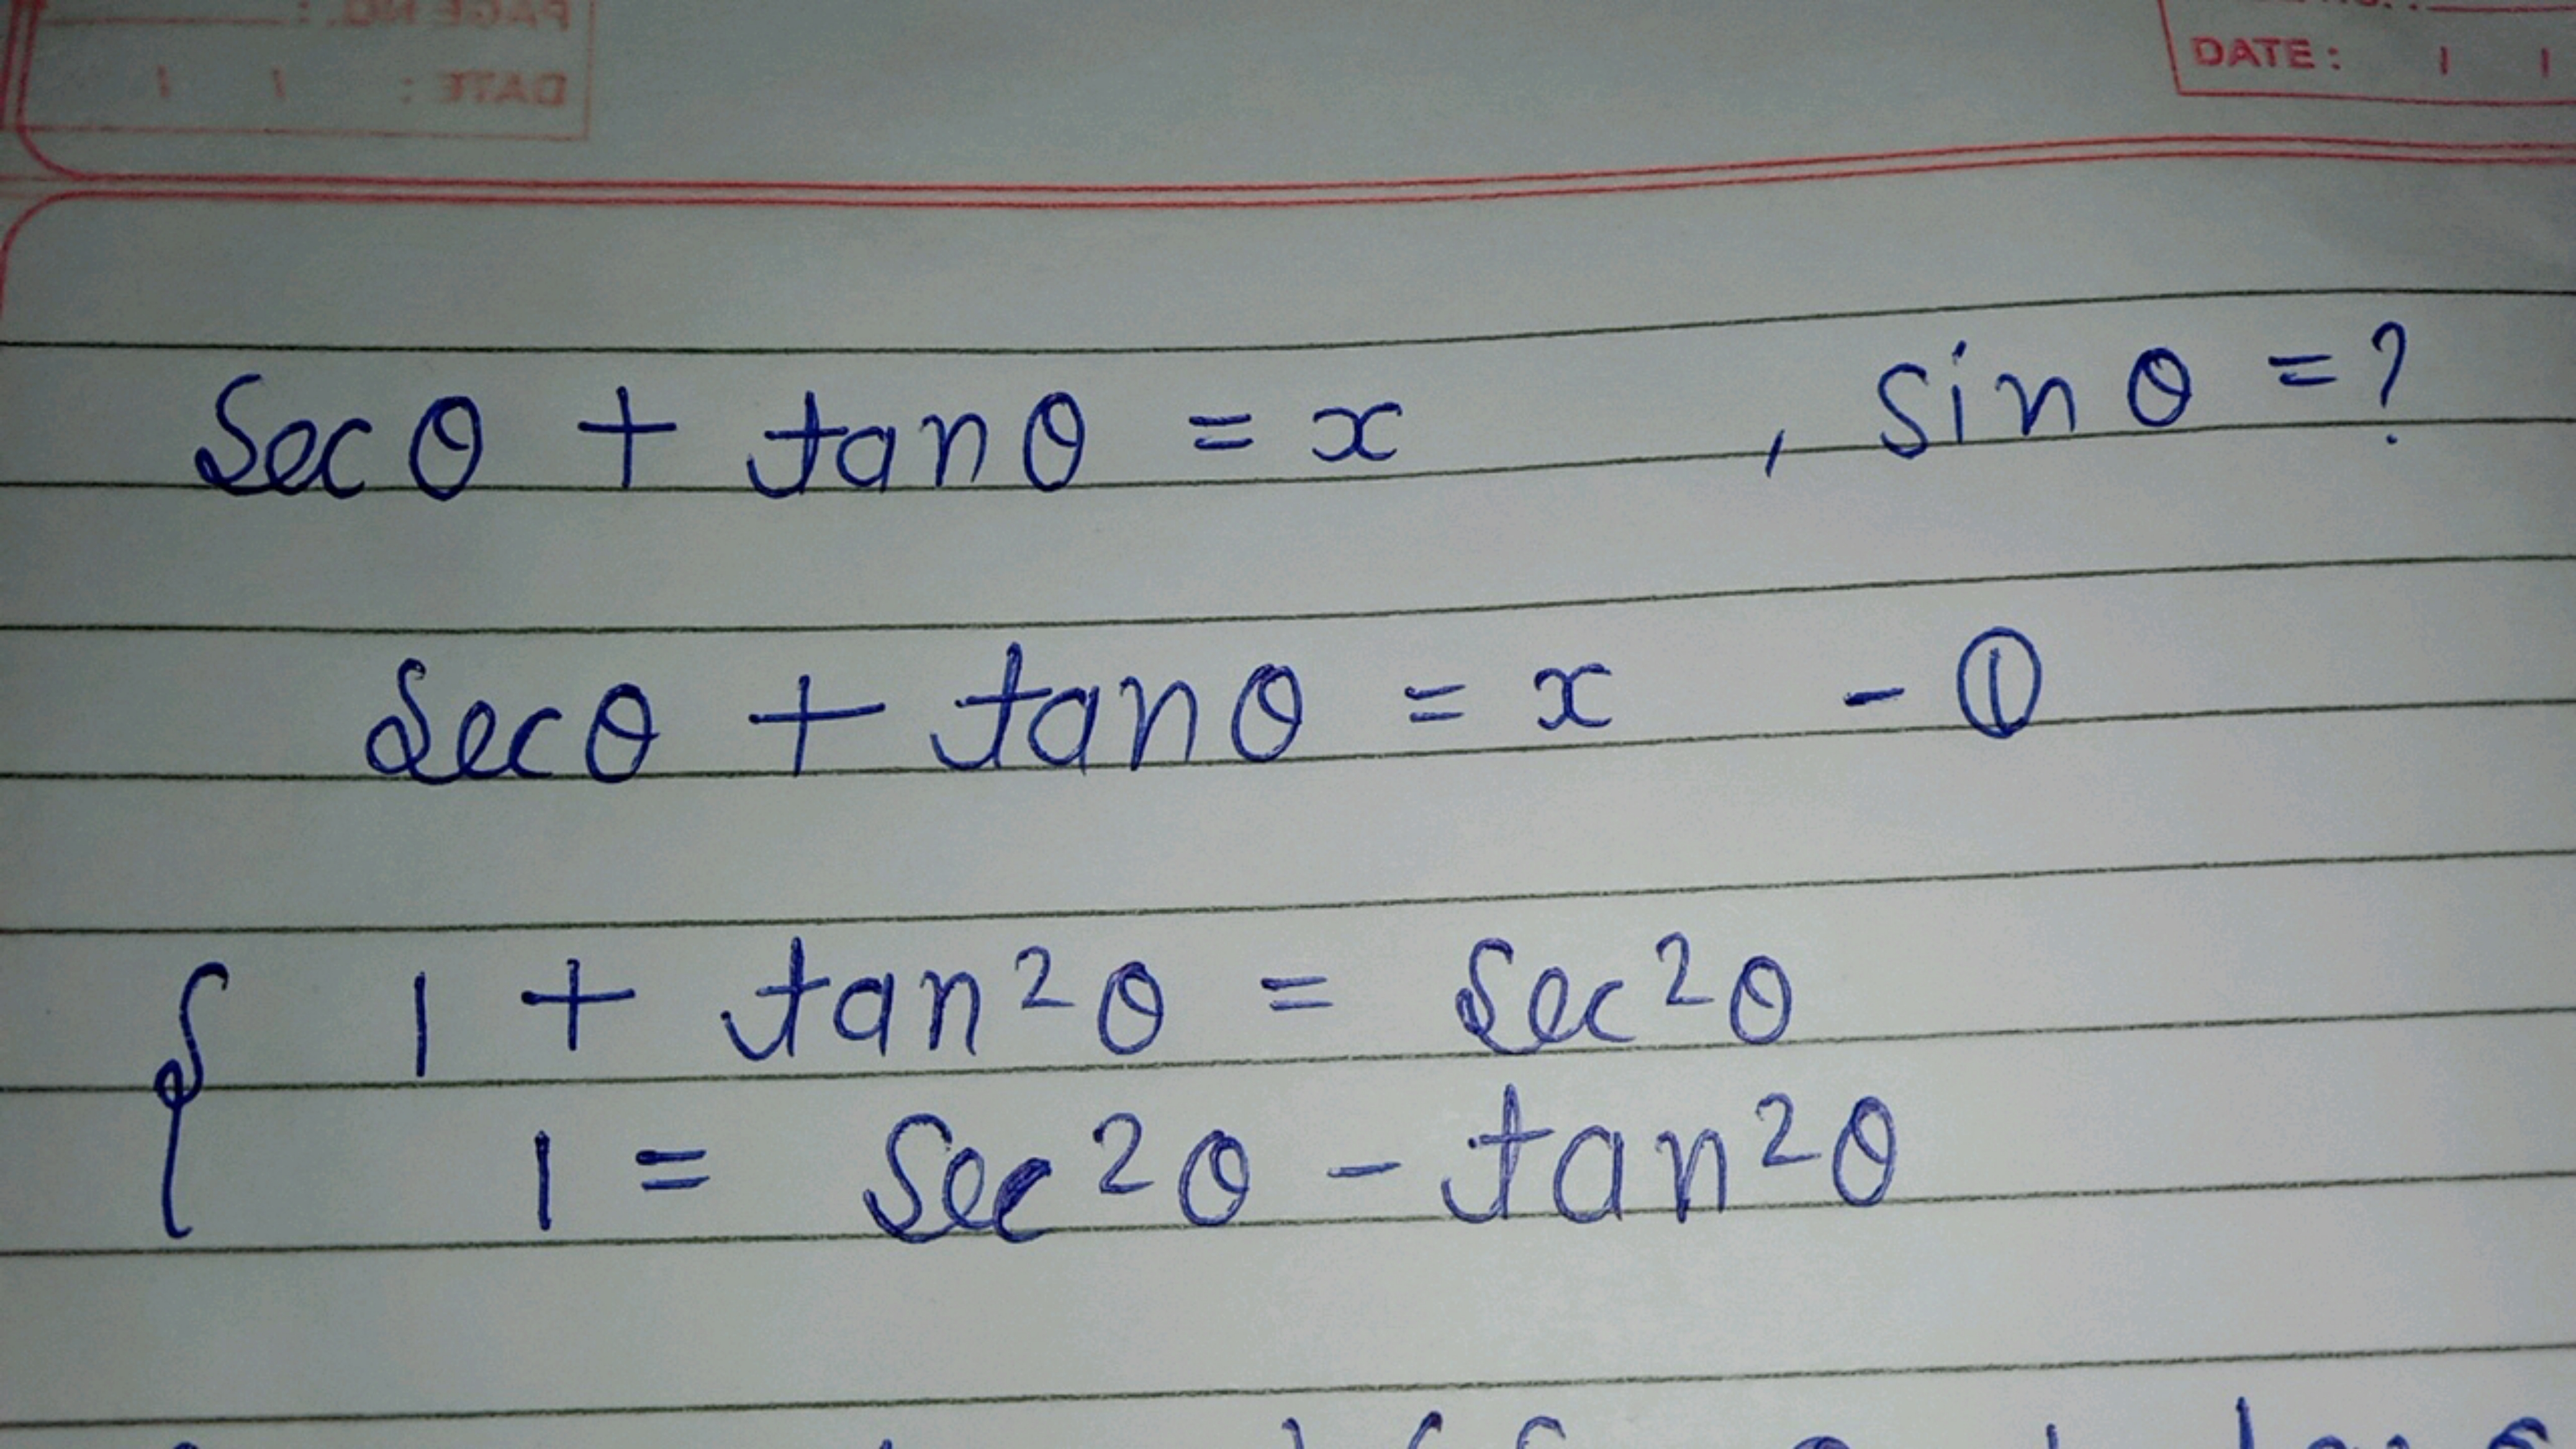 PAGE NO. :
DATE : / /
DATE : / /
Sec θ + tan θ = x , sin θ = ?
Sec θ + tan θ = x - ①
{ 1 + tan²θ = Sec²θ
1 = Sec²θ - tan²θ